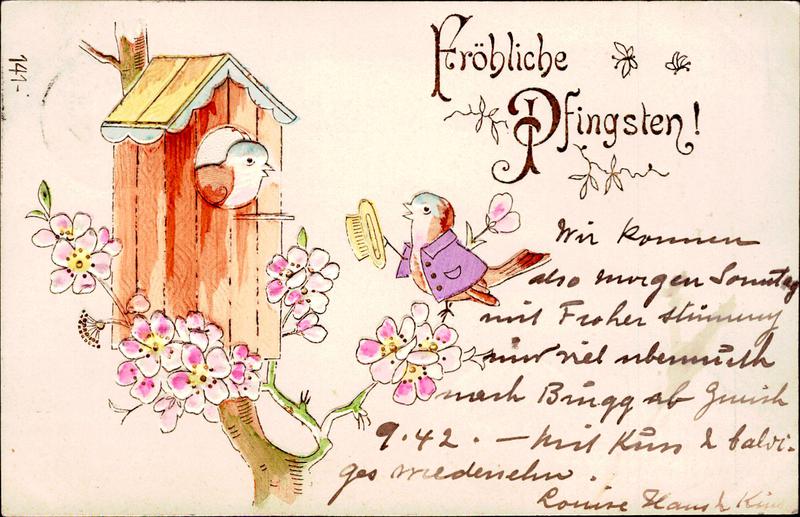 Fröhliche
Pfingsten!
141-
Wir kommen
also morgen Sonntag
mit Froher stimmung
und viel übermuth
nach Brugg ab Zürich
9.42. — Mit Kuss & baldi-
ges wiedersehn.
Louise Hans &